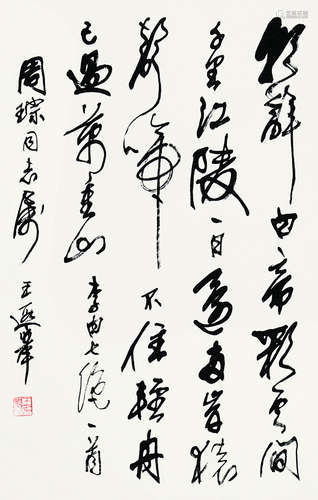 朝辭白帝彩雲間
千里江陵一日還兩岸猿
聲啼不住輕舟
已過萬重山 李白七絕一首
周琮同志屬 王遐舉